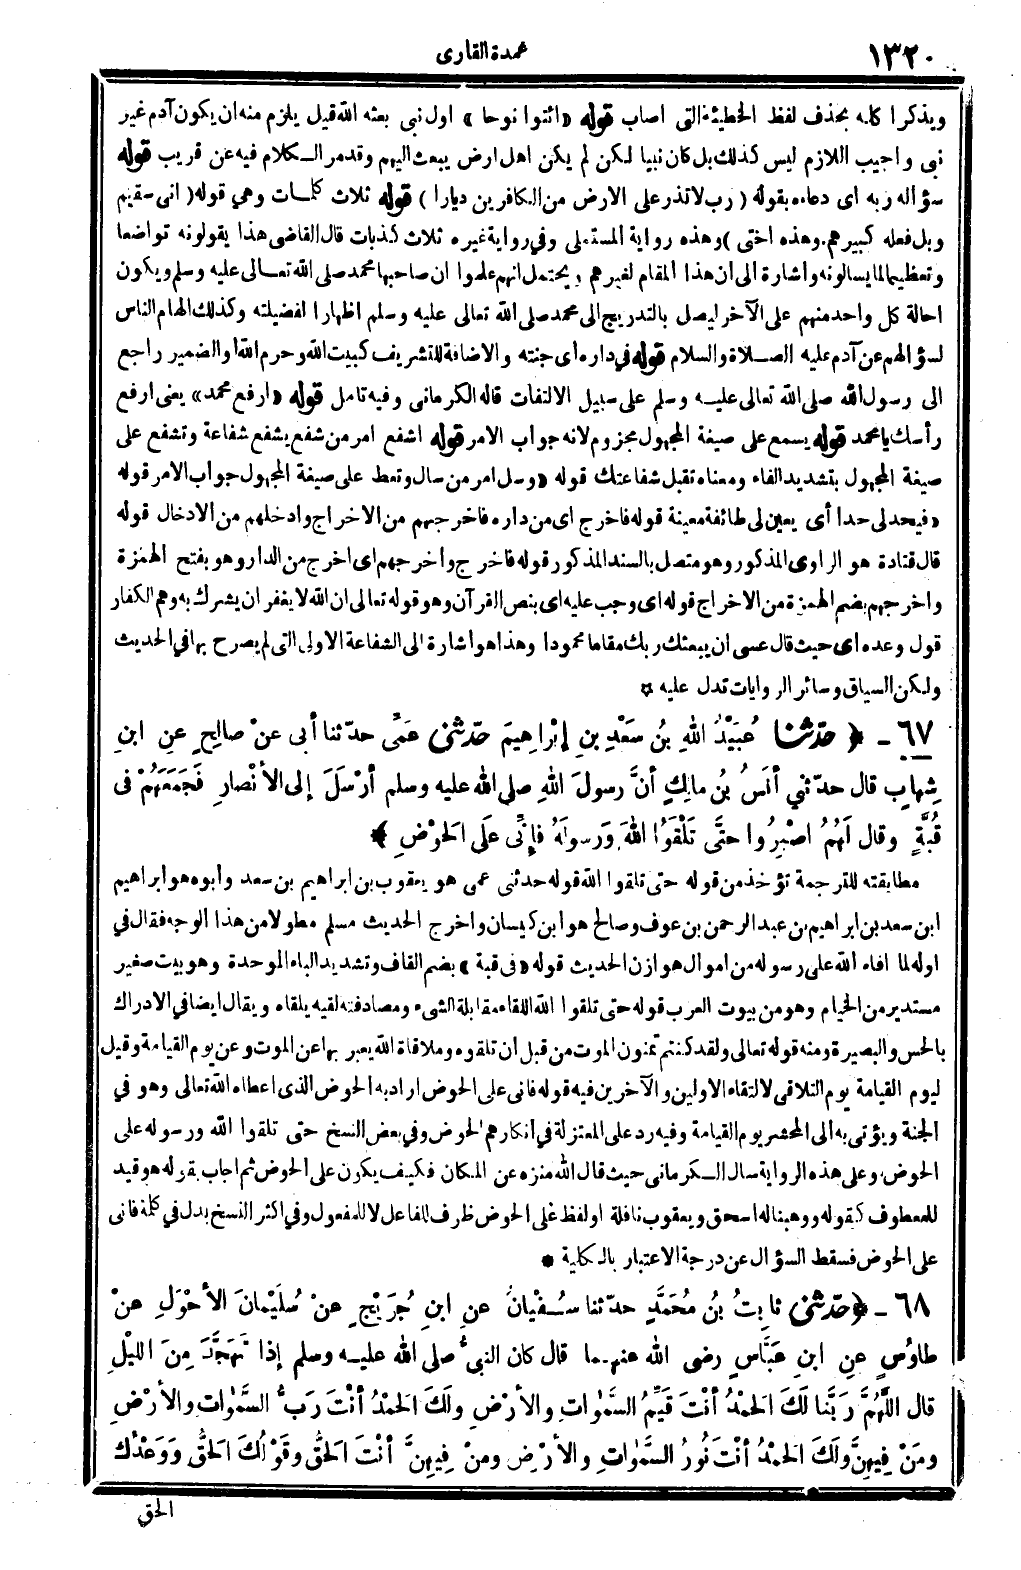 ١٣٢٠ عمدة القارى
ويذكر اكله بحذف لفظ الخطيئة التى اصاب قوله «ائتوا نوحا» اول نبى بعثه الله قيل يلزم منه ان يكون آدم غير
نبى واجيب اللازم ليس كذلك بل كان نبيا لكن لم يكن اهل ارض يبعث اليهم وقد مر الكلام فيه عن قريب قوله
سؤاله ربه اى دعاءه بقوله (رب لا تذر على الارض من الكافرين ديارا) قوله ثلاث كلمات وهي قوله (انى سقيم
وبل فعله كبيرهم. وهذه اختى) وهذه رواية المستملى وفي رواية غيره ثلاث كذبات قال القاضى هذا يقولونه تواضعا
وتعظيما لما يسالونه واشارة الى ان هذا المقام لغيرهم ويحتمل انهم علموا ان صاحبها محمد صلى الله تعالى عليه وسلم ويكون
احالة كل واحد منهم على الآخر ليصل بالتدريج الى محمد صلى الله تعالى عليه وسلم اظهارا لفضيلته وكذلك الهام الناس
لسؤالهم عن آدم عليه الصلاة والسلام قوله في داره اى جنته والاضافة للتشريف كبيت الله وحرم الله او الضمير راجع
الى رسول الله صلى الله تعالى عليه وسلم على سبيل الالتفات قاله الكرمانى وفيه تامل قوله «ارفع محمد» يعنى ارفع
رأسك يا محمد قوله يسمع على صيغة المجهول مجزوم لانه جواب الامر قوله اشفع امر من شفع يشفع شفاعة وتشفع على
صيغة المجهول بتشديد الفاء ومعناه تقبل شفاعتك قوله «وسل امر من سال وتعط على صيغة المجهول جواب الامر قوله
«فيحد لى حدا أى يعين لى طائفة معينة قوله فاخرج اى من داره فاخرجهم من الاخراج وادخلهم من الادخال قوله
قال قتادة هو الراوى المذكور وهو متصل بالسند المذكور قوله فاخرج واخرجهم اى اخرج من الدار وهو بفتح الهمزة
واخرجهم بضم الهمزة من الاخراج قوله اى وجب عليه اى بنص القرآن وهو قوله تعالى ان الله لا يغفر ان يشرك به وهم الكفار
قول وعده اى حيث قال عسى ان يبعثك ربك مقاما محمودا وهذا هو اشارة الى الشفاعة الاولى التى لم يصرح بها في الحديث
ولكن السياق وسائر الروايات تدل عليه ¤
٦٧ - ﴿ حدّثنا عُبَيْدُ اللهِ بنُ سَعْدِ بنِ إبْراهِيمَ حدّثنى عَمِّى حدّثنا أبى عنْ صالِحٍ عنِ ابنِ
شِهابٍ قال حدّثني أنَسُ بنُ مالِكٍ أنَّ رسولَ اللهِ صلى الله عليه وسلم أرْسَلَ إلى الأنْصارِ فَجَمَعَهُمْ فى
قُبَّةٍ وقال لَهُمُ اصْبِرُوا حتَّى تَلْقَوُا اللهَ وَرسولَهُ فإنِّى علَى الحَوْضِ ﴾
مطابقته للترجمة تؤخذ من قوله حتى تلقوا الله قوله حدثنى عمى هو يعقوب بن ابراهيم بن سعد وأبوه هو ابراهيم
ابن سعد بن ابراهيم بن عبد الرحمن بن عوف وصالح هو ابن كيسان واخرج الحديث مسلم مطولا من هذا الوجه فقال في
اوله لما افاء الله على رسوله من اموال هوازن الحديث قوله «فى قبة» بضم القاف وتشديد الباء الموحدة وهو بيت صغير
مستدير من الخيام وهو من بيوت العرب قوله حتى تلقوا الله اللقاء مقابلة الشىء ومصادفته لقيه يلقاه ويقال ايضا في الادراك
بالحس والبصيرة ومنه قوله تعالى ولقد كنتم تمنون الموت من قبل أن تلقوه وملاقاة الله يعبر بها عن الموت وعن يوم القيامة وقيل
ليوم القيامة يوم التلاقى لالتقاء الاولين والآخرين فيه قوله فانى على الحوض اراد به الحوض الذى اعطاه الله تعالى وهو في
الجنة ويؤتى به الى المحشر يوم القيامة وفيه رد على المعتزلة في انكارهم الحوض وفي بعض النسخ حتى تلقوا الله ورسوله على
الحوض وعلى هذه الرواية سال الكرمانى حيث قال الله منزه عن المكان فكيف يكون على الحوض ثم اجاب بقوله هو قيد
للمعطوف كقوله ووهبنا له اسحق ويعقوب نافلة او لفظ على الحوض ظرف للفاعل لا للمفعول وفي اكثر النسخ بدل في كلمة فانى
على الحوض فسقط السؤال عن درجة الاعتبار بالكلية ●
٦٨ - ﴿ حدّثنى ثابِتُ بنُ مُحَمَّدٍ حدّثنا سُفْيانُ عنِ ابنِ جُرَيْجٍ عنْ سُلَيْمانَ الأحْوَلِ عنْ
طاوُسٍ عنِ ابنِ عَبَّاسٍ رضى الله عنهما قال كان النبىُّ صلى الله عليه وسلم إذا تَهَجَّدَ مِنَ اللَّيْلِ
قال اللَّهُمَّ رَبَّنا لَكَ الحَمْدُ أنْتَ قَيِّمُ السَّمٰواتِ والأرْضِ ولَكَ الحَمْدُ أنْتَ رَبُّ السَّمٰواتِ والأرْضِ
ومَنْ فِيهِنَّ ولَكَ الحَمْدُ أنْتَ نُورُ السَّمٰواتِ والأرْضِ ومنْ فِيهِنَّ أنْتَ الحَقُّ وقَوْلُكَ الحَقُّ وَوَعْدُكَ
الحق